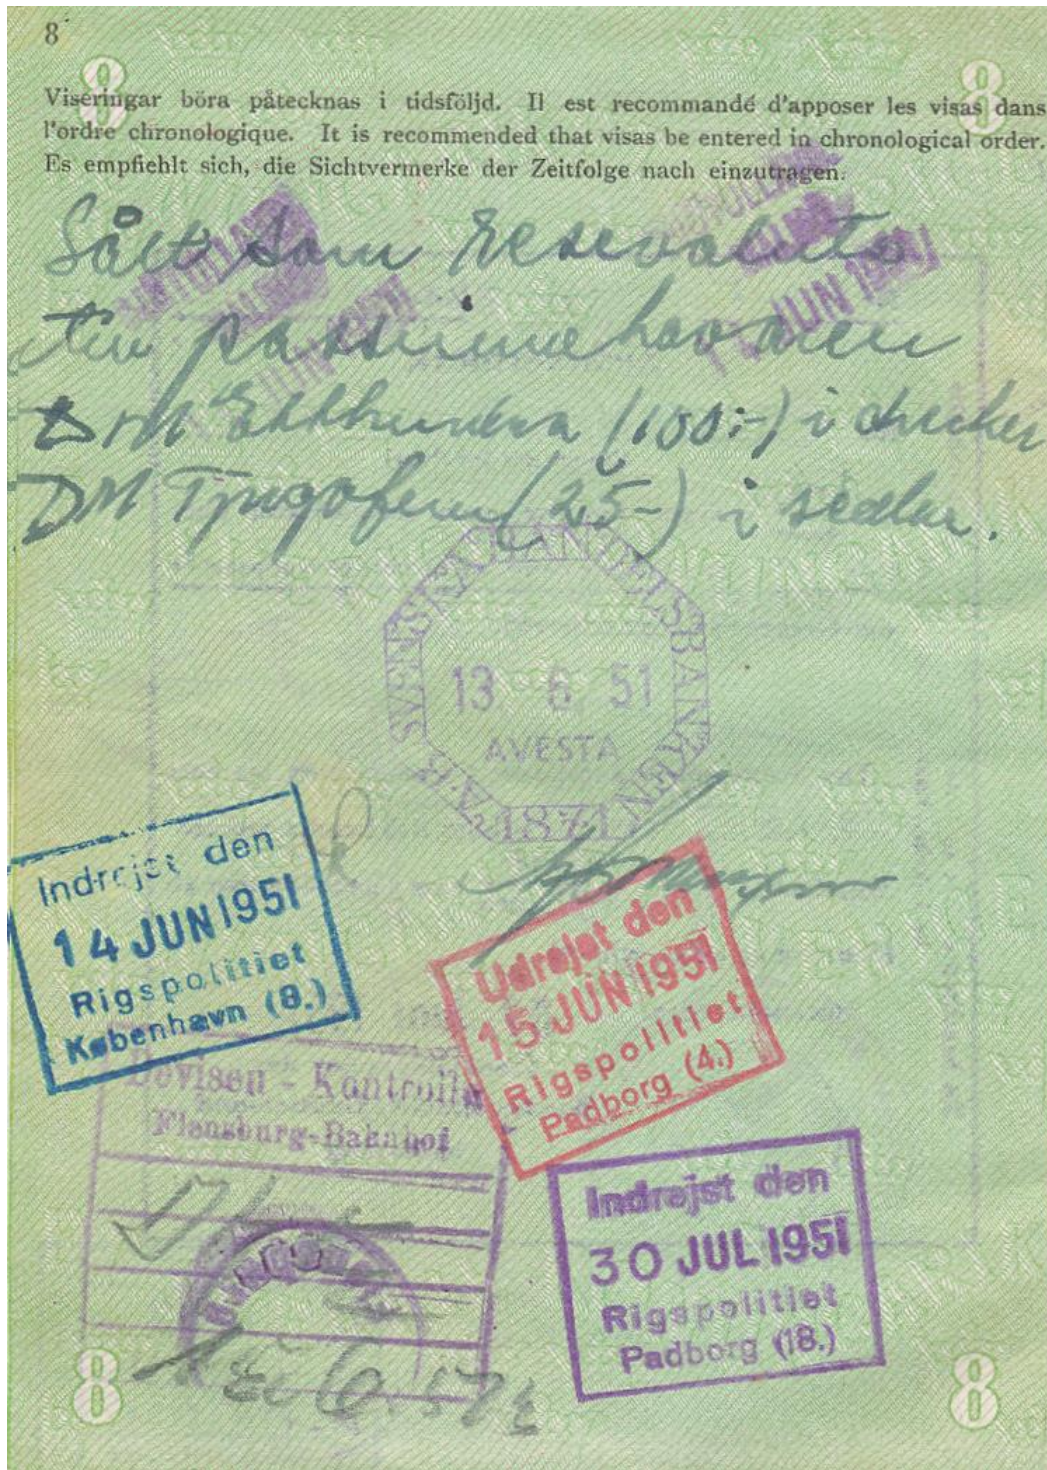 8
Viseringar böra påtecknas i tidsföljd. Il est recommandé d'apposer les visas dans
l'ordre chronologique. It is recommended that visas be entered in chronological order.
Es empfiehlt sich, die Sichtvermerke der Zeitfolge nach einzutragen.
Sålt som resevaluta
till passinnehavaren
DM Etthundra (100:-) i checker
DM Tjugofem (25-) i sedlar.
SVENSKA HANDELSBANKEN
13 6 51
AVESTA
1871
Indrejst den
14 JUN 1951
Rigspolitiet
København (8.)
Udrejst den
15 JUN 1951
Rigspolitiet
Padborg (4.)
Devisen - Kontrolle
Flensburg-Bahnhof
Indrejst den
30 JUL 1951
Rigspolitiet
Padborg (18.)
8
8
8
8